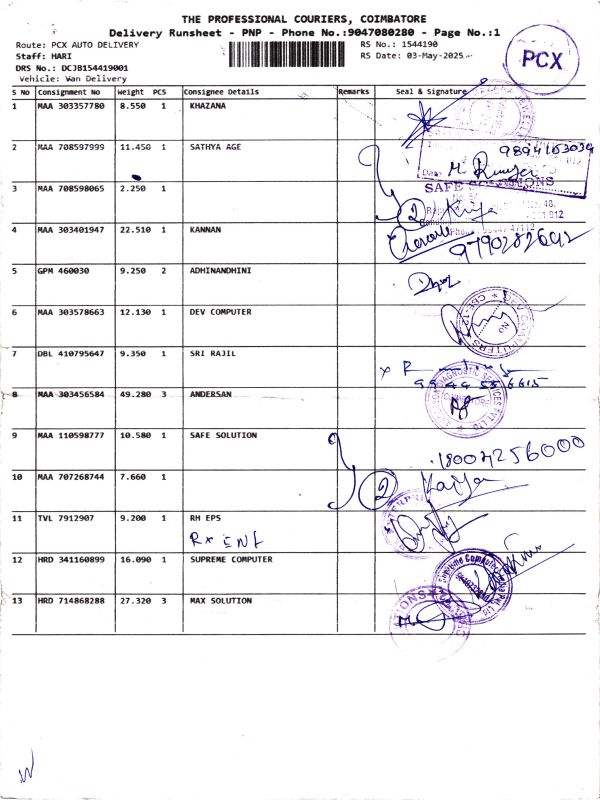 THE PROFESSIONAL COURIERS, COIMBATORE
Delivery Runsheet - PNP - Phone No.:9047080280 - Page No.:1
Route: PCX AUTO DELIVERY
Staff: HARI
DRS No.: DCJB154419001
Vehicle: Wan Delivery
RS No.: 1544190
RS Date: 03-May-2025
PCX
S No Consignment No Weight PCS Consignee Details Remarks Seal & Signature
1 MAA 303357780 8.550 1 KHAZANA
2 MAA 708597999 11.450 1 SATHYA AGE 9894163034
3 MAA 708598065 2.250 1
SAFE SOLUTIONS
2
4 MAA 303401947 22.510 1 KANNAN 9790282692
5 GPM 460030 9.250 2 ADHINANDHINI
6 MAA 303578663 12.130 1 DEV COMPUTER
7 DBL 410795647 9.350 1 SRI RAJIL
9944556615
8 MAA 303456584 49.280 3 ANDERSAN
9 MAA 110598777 10.580 1 SAFE SOLUTION 18004256000
10 MAA 707268744 7.660 1 2
11 TVL 7912907 9.200 1 RH EPS
RX ENT
12 HRD 341160899 16.090 1 SUPREME COMPUTER
13 HRD 714868288 27.320 3 MAX SOLUTION